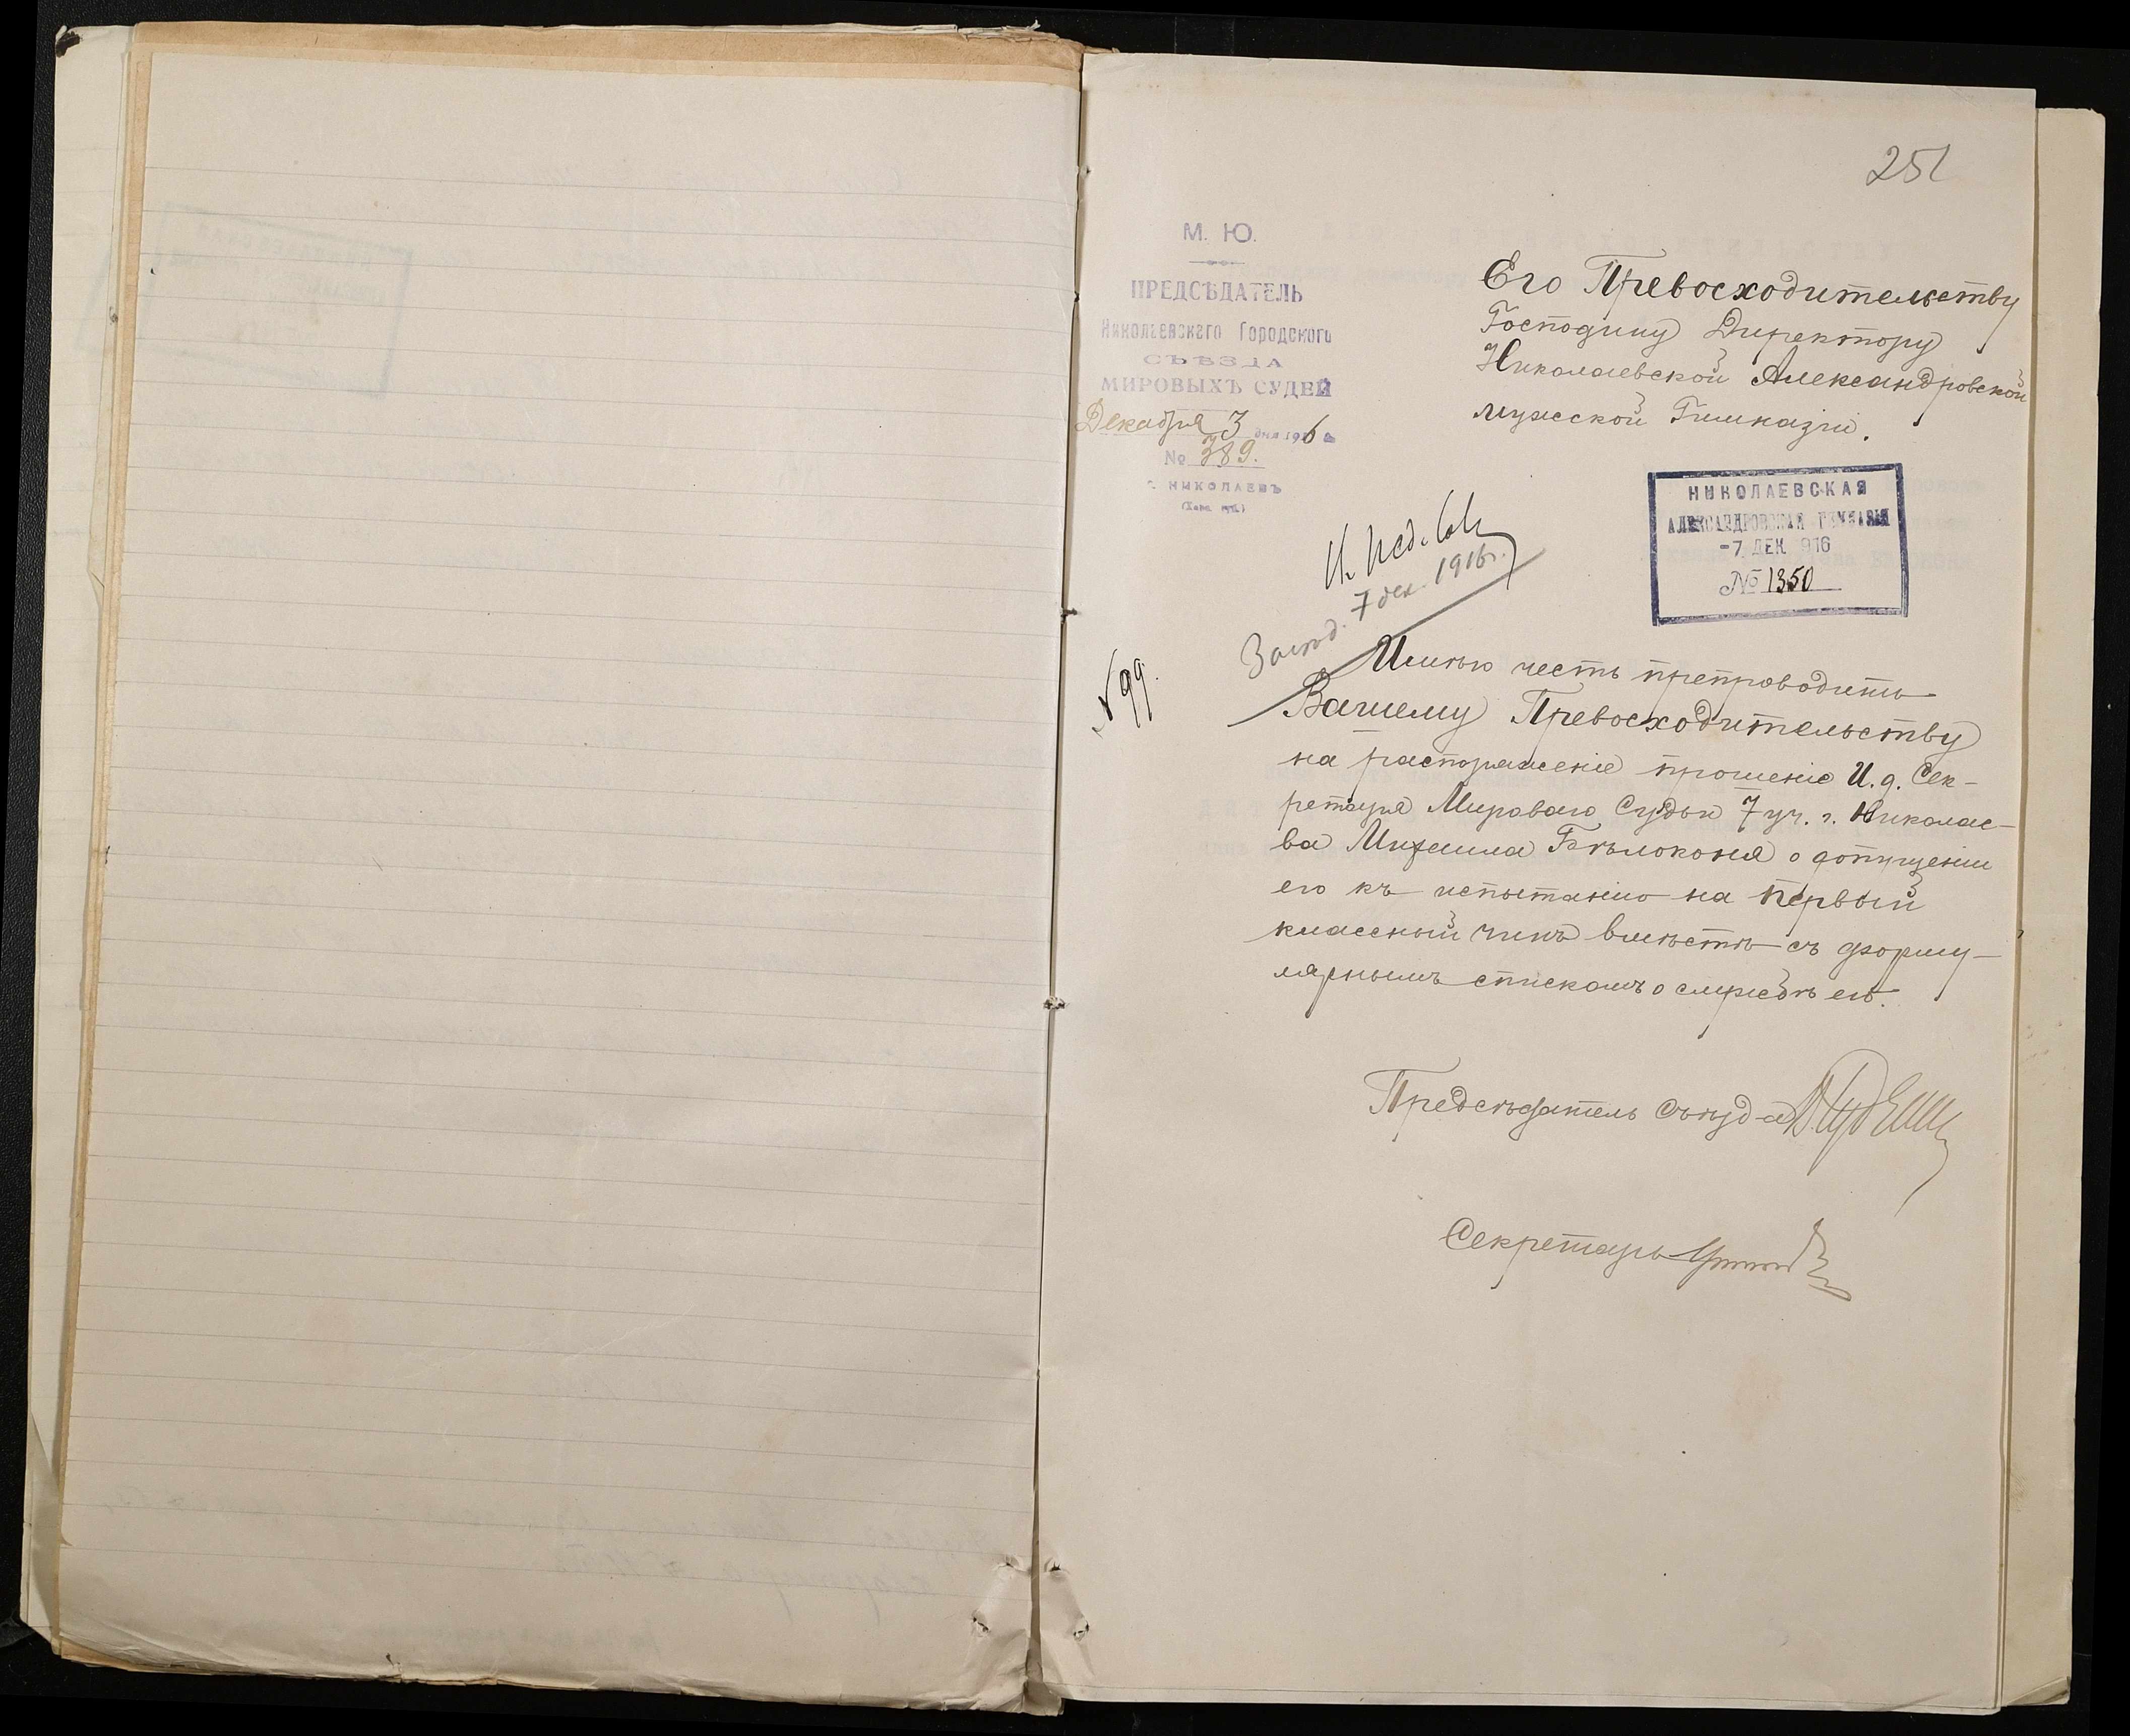 251
М. Ю.
ПРЕДСѢДАТЕЛЬ
Николаевскаго Городского
СЪѢЗДА
МИРОВЫХЪ СУДЕЙ
Декабря 3 дня 1916 г.
№ 389.
г. НИКОЛАЕВЪ
(Херс. губ.)
Его Превосходительству
Господину Директору
Николаевской Александровской
мужской Гимназіи.
НИКОЛАЕВСКАЯ
АЛЕКСАНДРОВСКАЯ ГИМНАЗІЯ
-7 ДЕК 1916
№ 1350
7 дек. 1916 г.
№ 99.
Имѣю честь препроводить
Вашему Превосходительству
на распоряженіе прошеніе И.д. Сек-
ретаря Мироваго Судьи 7 уч. г. Николае-
ва Михаила Бѣлоконя о допущеніи
его къ испытанію на первый
классный чинъ вмѣстѣ съ форму-
лярнымъ спискомъ о службѣ его.
Предсѣдатель Съѣзда
Секретарь